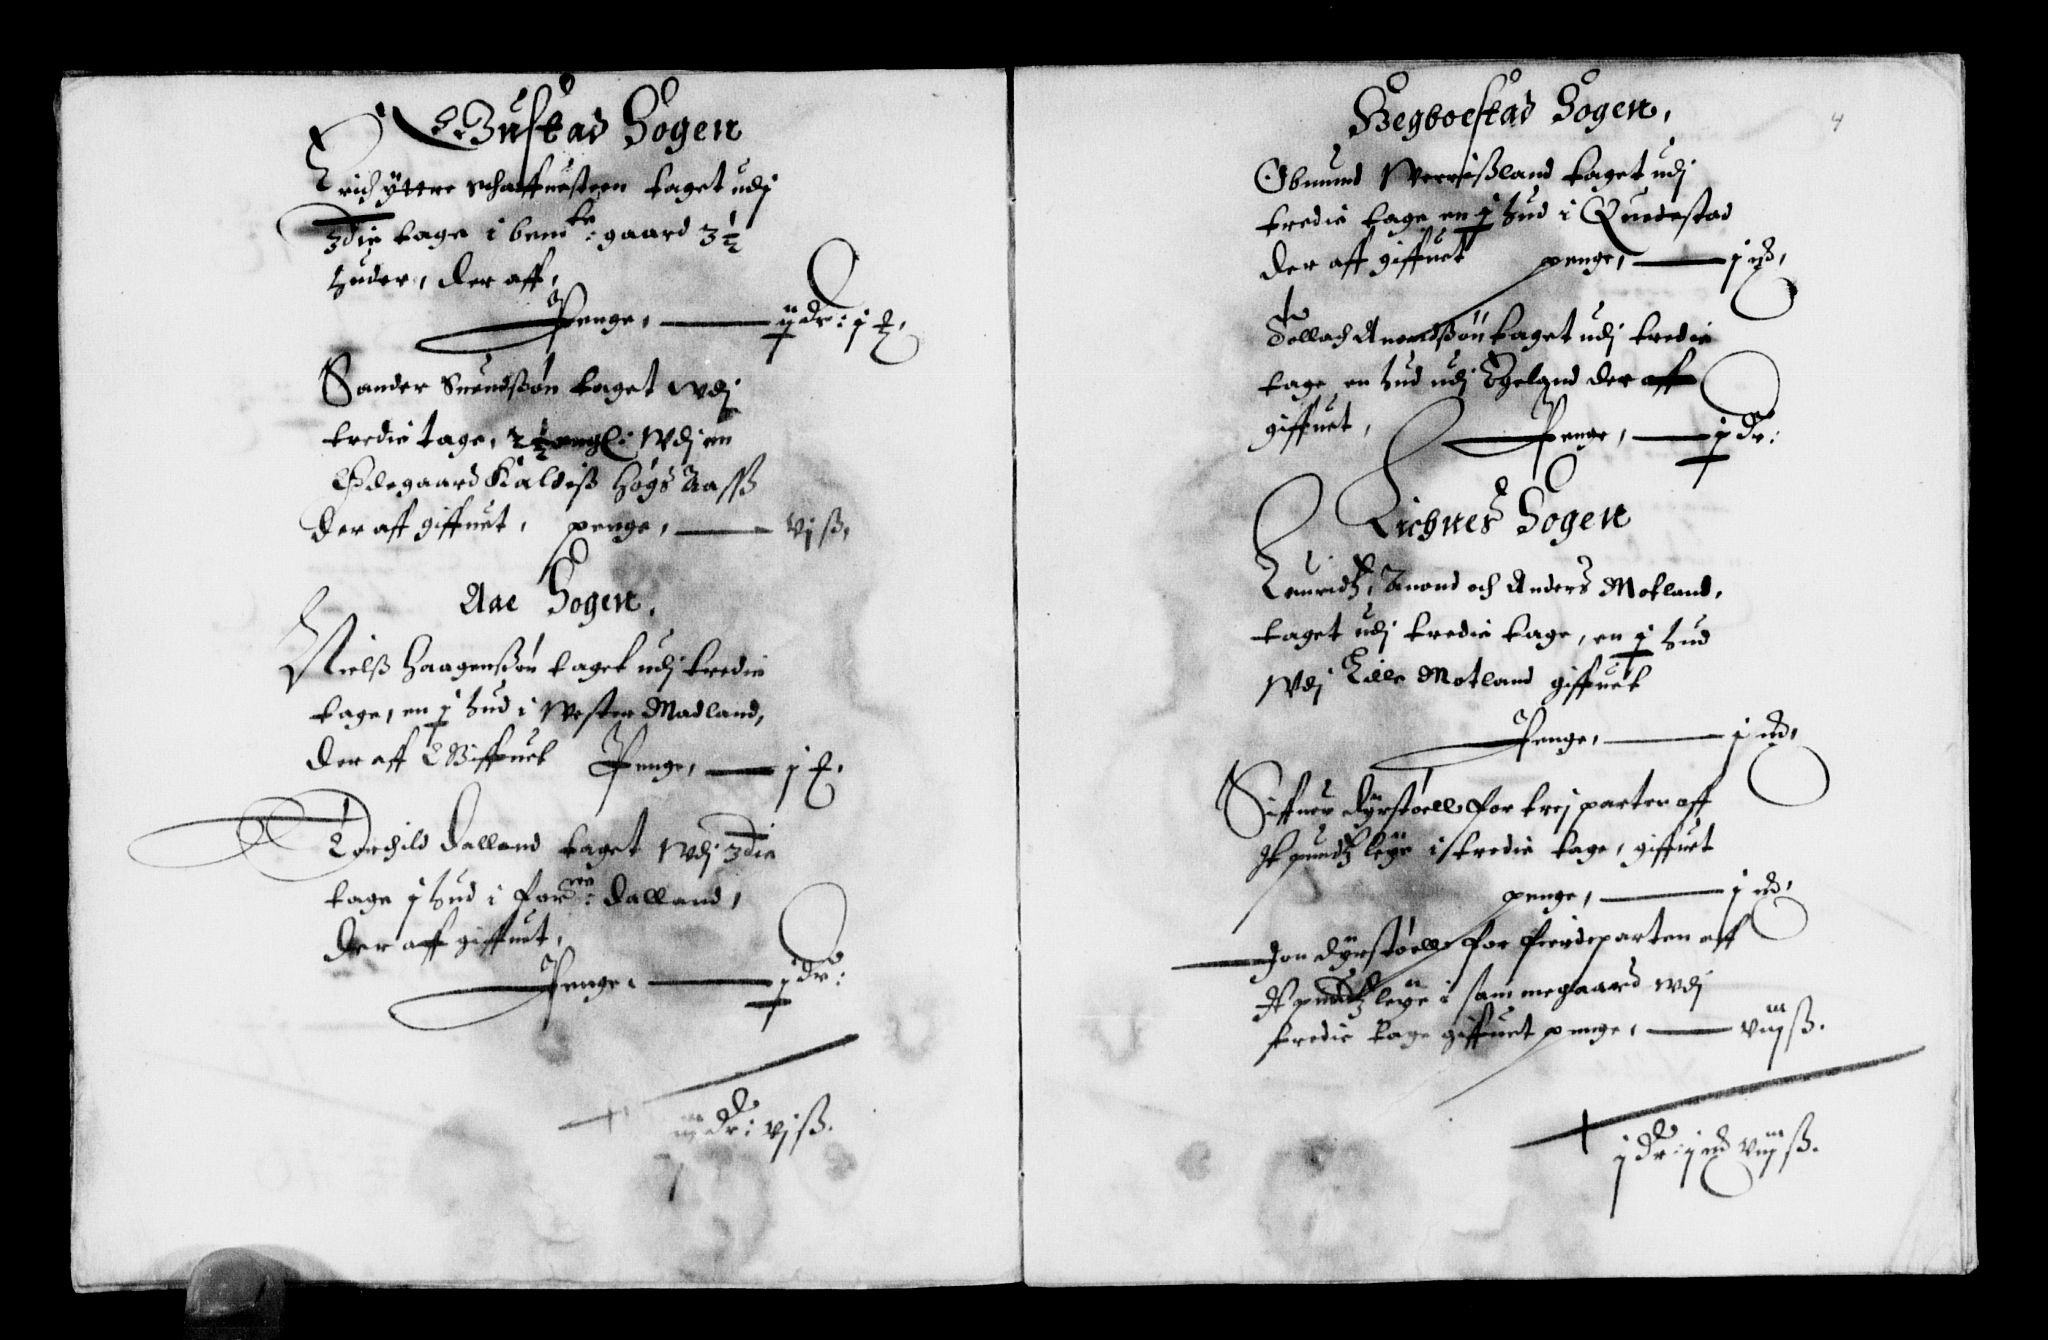 Bustad Sogen
Erich ÿttre schaffnesteen taget udj
3die tage i bem.te gaard 3½
huder, der aff,
Penge, ij dr: j
Sander Suendsøn taget wdj
tredie tage, 2½ engl: wdj en
Ødegaard Kaldiß høgs Aaß
der aff giffuet, penge, vj ß,
Aae Sogen.
Nielß Haagensøn taget udj tredie
tage, en j hud i Wester Madland,
der aff Giffuet Penge, j
Torchild Dalland taget wdj 3die
tage j hud i for:ne Dalland,
der aff giffuet,
Penge, j dr:
iij dr: vj ß.
4
Hegboestad Sogen,
Gbmund Werrißland taget udj
tredie tage en j hud i Quedestad
der aff giffuet penge, j
Tollach Anendsøn taget udj tredie
tage en hud udj Egeland der aff
giffuet, Penge, j dr:
Lichnes Sogen
Lauridtz, Anond och Anders Motland,
taget udj tredie tage, en j hud
wdj Lille Motland giffuet
Penge, j
Siffuer Dÿrstoell for trej parten aff
It pundtz leÿe i tredie tage, giffuet
penge, j
Jon Dÿrstoell for fierdeparten aff
It pundtz leÿe i samme gaard wdj
tredie tage giffuet penge, viij ß.
j dr: j viij ß.